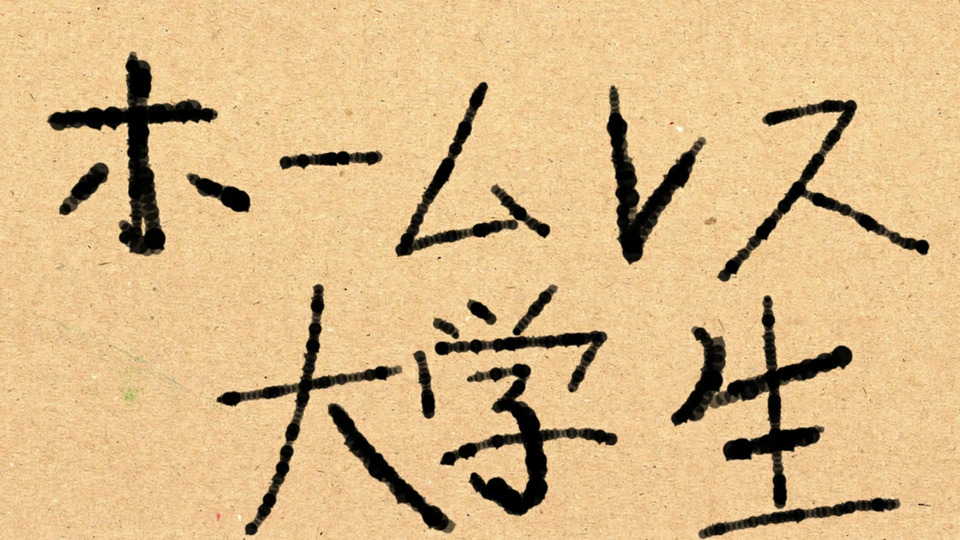 ホームレス
大学生